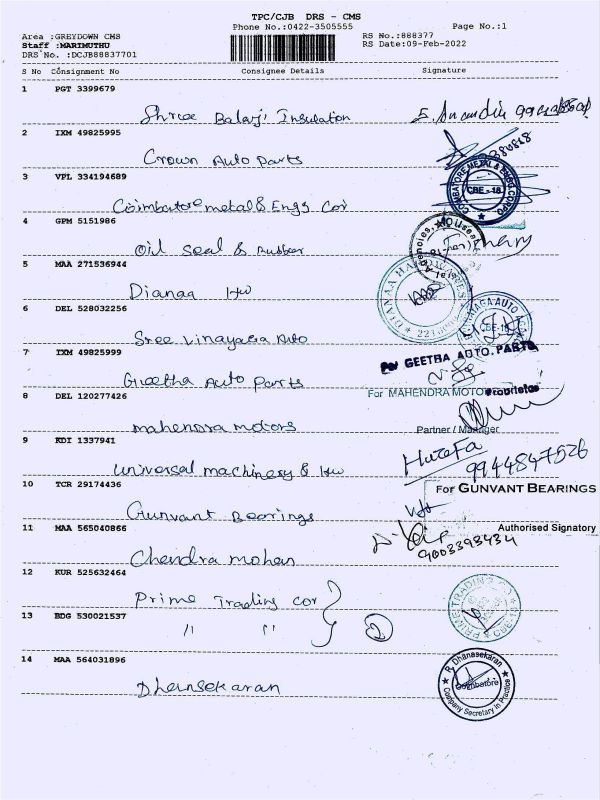 TPC/CJB DRS - CMS
Phone No.:0422-3505555
Page No.:1
Area :GREYDOWN CMS
Staff :MARIMUTHU
DRS No. :DCJB88837701
RS No.:888377
RS Date:09-Feb-2022
S No Consignment No Consignee Details Signature
1 PGT 3399679
Shree Balaji Insulation
2 IXM 49825995
Crown Auto Parts
3 VPL 334194689
CBE-18
Coimbatore metal & Engg Cor
4 GPM 5151986
Oil Seal & Rubber
5 MAA 271536944
Dianaa Hw
6 DEL 528032256
CBE-18
Sree Vinayaga Auto
7 IXM 49825999
For GEETHA AUTO PARTS
Geetha Auto Parts
8 DEL 120277426
For MAHENDRA MOTO
Proprietor
mahendra motors
Partner / Manager
9 KDI 1337941
Huzefa
9944847526
Universal machinery & Hw
10 TCR 29174436
For GUNVANT BEARINGS
Gunvant Bearings
11 MAA 565040866
Authorised Signatory
9003393434
Chendra mohan
12 KUR 525632464
Prime Trading cor
13 BDG 530021537
" "
2
PRIME TRADING
14 MAA 564031896
R. Dhanasekaran
Coimbatore
Company Secretary in Practice
Dhansekaran